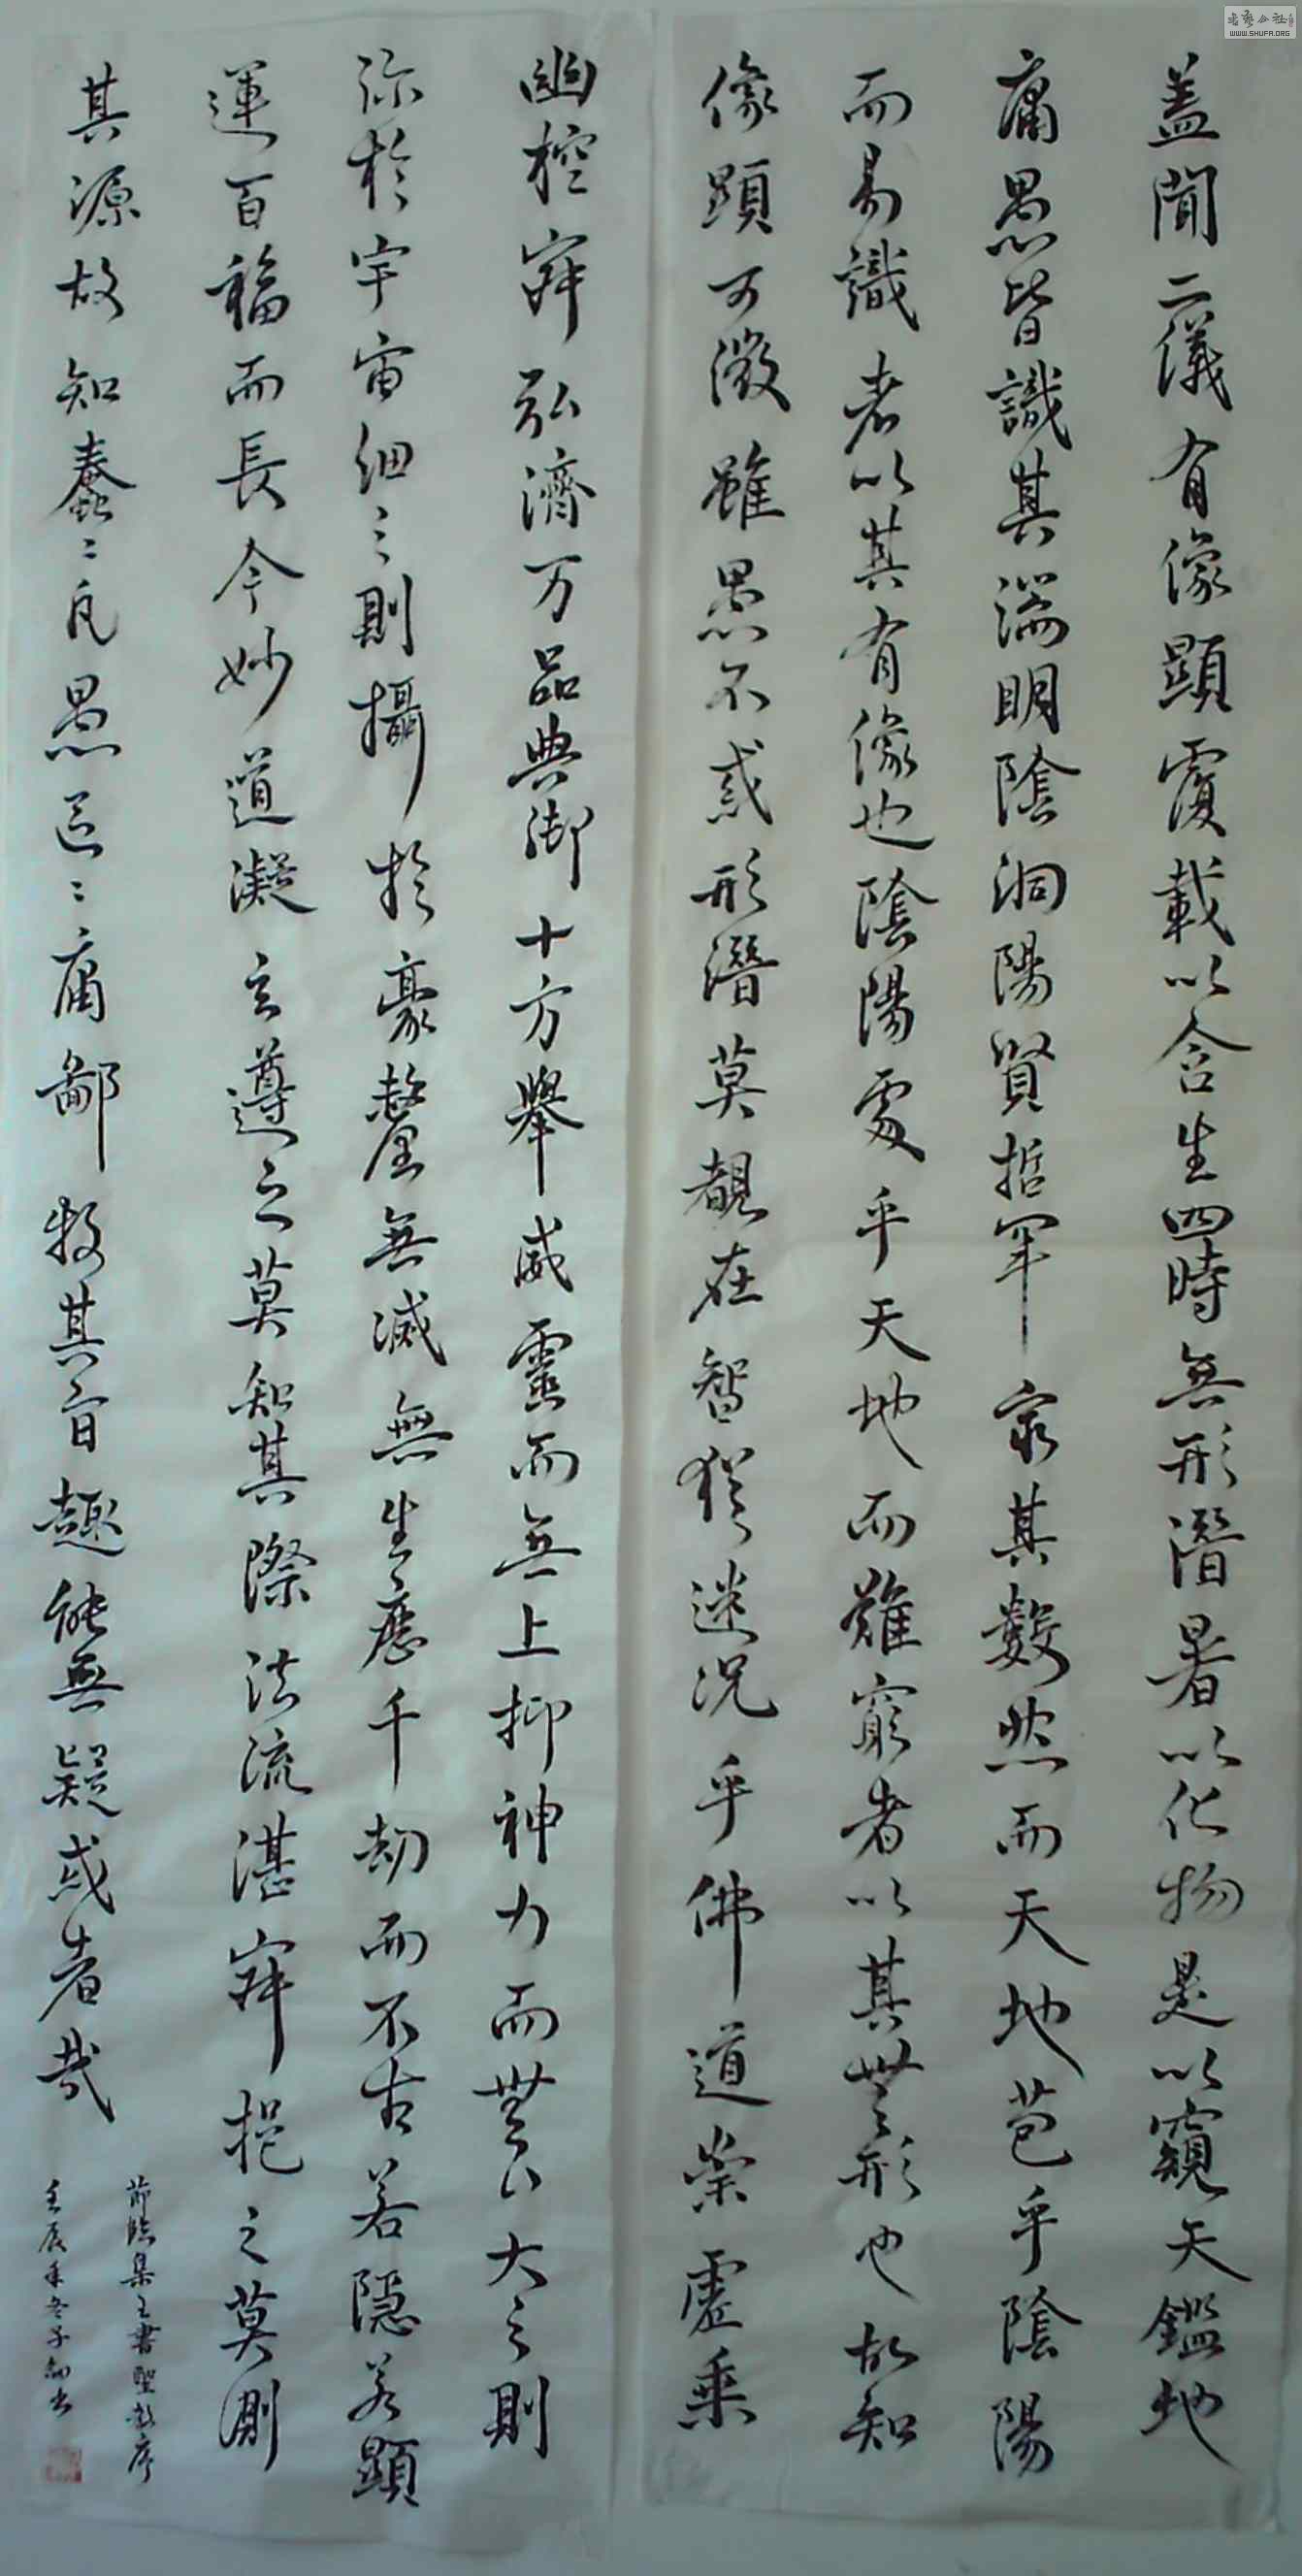 盖聞二儀有像顯覆載以含生四時無形潛暑以化物是以窺天鑑地
庸愚皆識其端明陰洞陽賢哲罕窮其數然而天地苞乎陰陽
而易識者以其有像也陰陽處乎天地而難窮者以其無形也故知
像顯可徵雖愚不惑形潛莫覩在智猶迷況乎佛道崇虛乘
幽控寂弘濟万品典御十方舉威靈而無上抑神力而無下大之則
弥於宇宙細之則攝於豪釐無滅無生歷千劫而不古若隱若顯
運百福而長今妙道凝玄遵之莫知其際法流湛寂挹之莫測
其源故知蠢二凡愚區二庸鄙投其旨趣能無疑或者哉
節臨集王書聖教序
壬辰年冬子
WWW.SHUFA.ORG